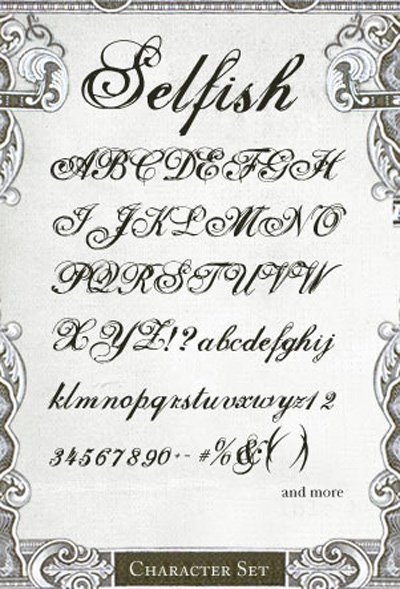 Selfish
ABCDEFGH
IJKLMNO
PQRSTUVW
XYZ!?abcdefghij
klmnopqrstuvxwyz12
34567890+- #%&()
and more
Character Set